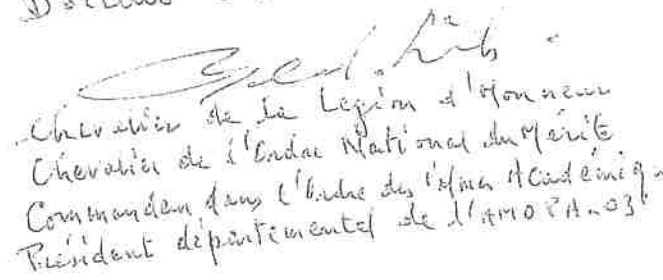 Chevalier de la Legion d'Honneur
Chevalier de l'Ordre National du Mérite
Commandeur dans l'Ordre des Palmes Académiq
Président départemental de l'AMOPA-03